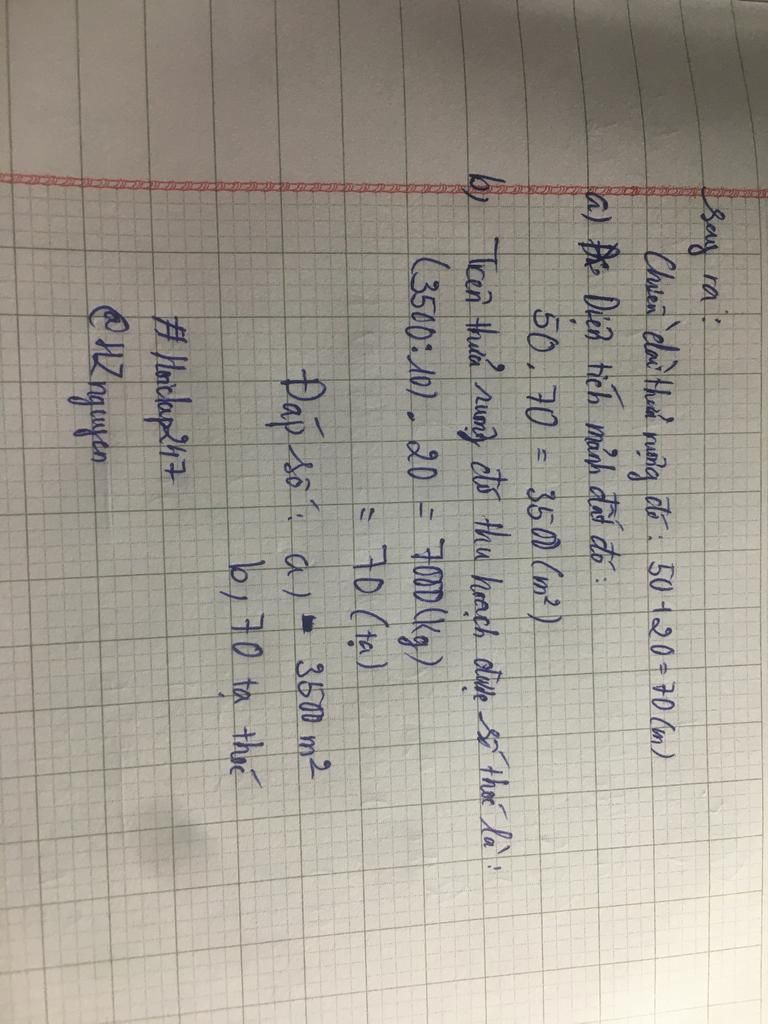 suy ra:
Chiều dài thửa ruộng đó: 50 + 20 = 70 (m)
a) Diện tích mảnh đất đó:
50 . 70 = 3500 (m²)
b) Trên thửa ruộng đó thu hoạch được số thóc là:
(3500 : 10) . 20 = 7000 (kg)
= 70 (tạ)
Đáp số: a, 3500 m²
b, 70 tạ thóc
#Hoidap247
@HZnguyen